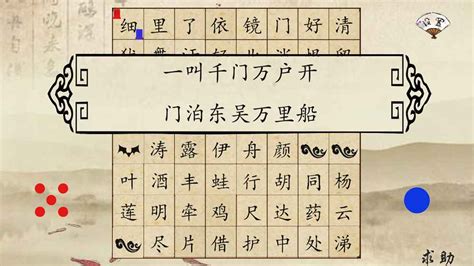 设置
细里了依镜门好清
一叫千门万户开
门泊东吴万里船
涛露伊舟颜
叶酒丰蛙行胡同杨
莲明牵鸡尺达药云
尽片借护中处涕
求助